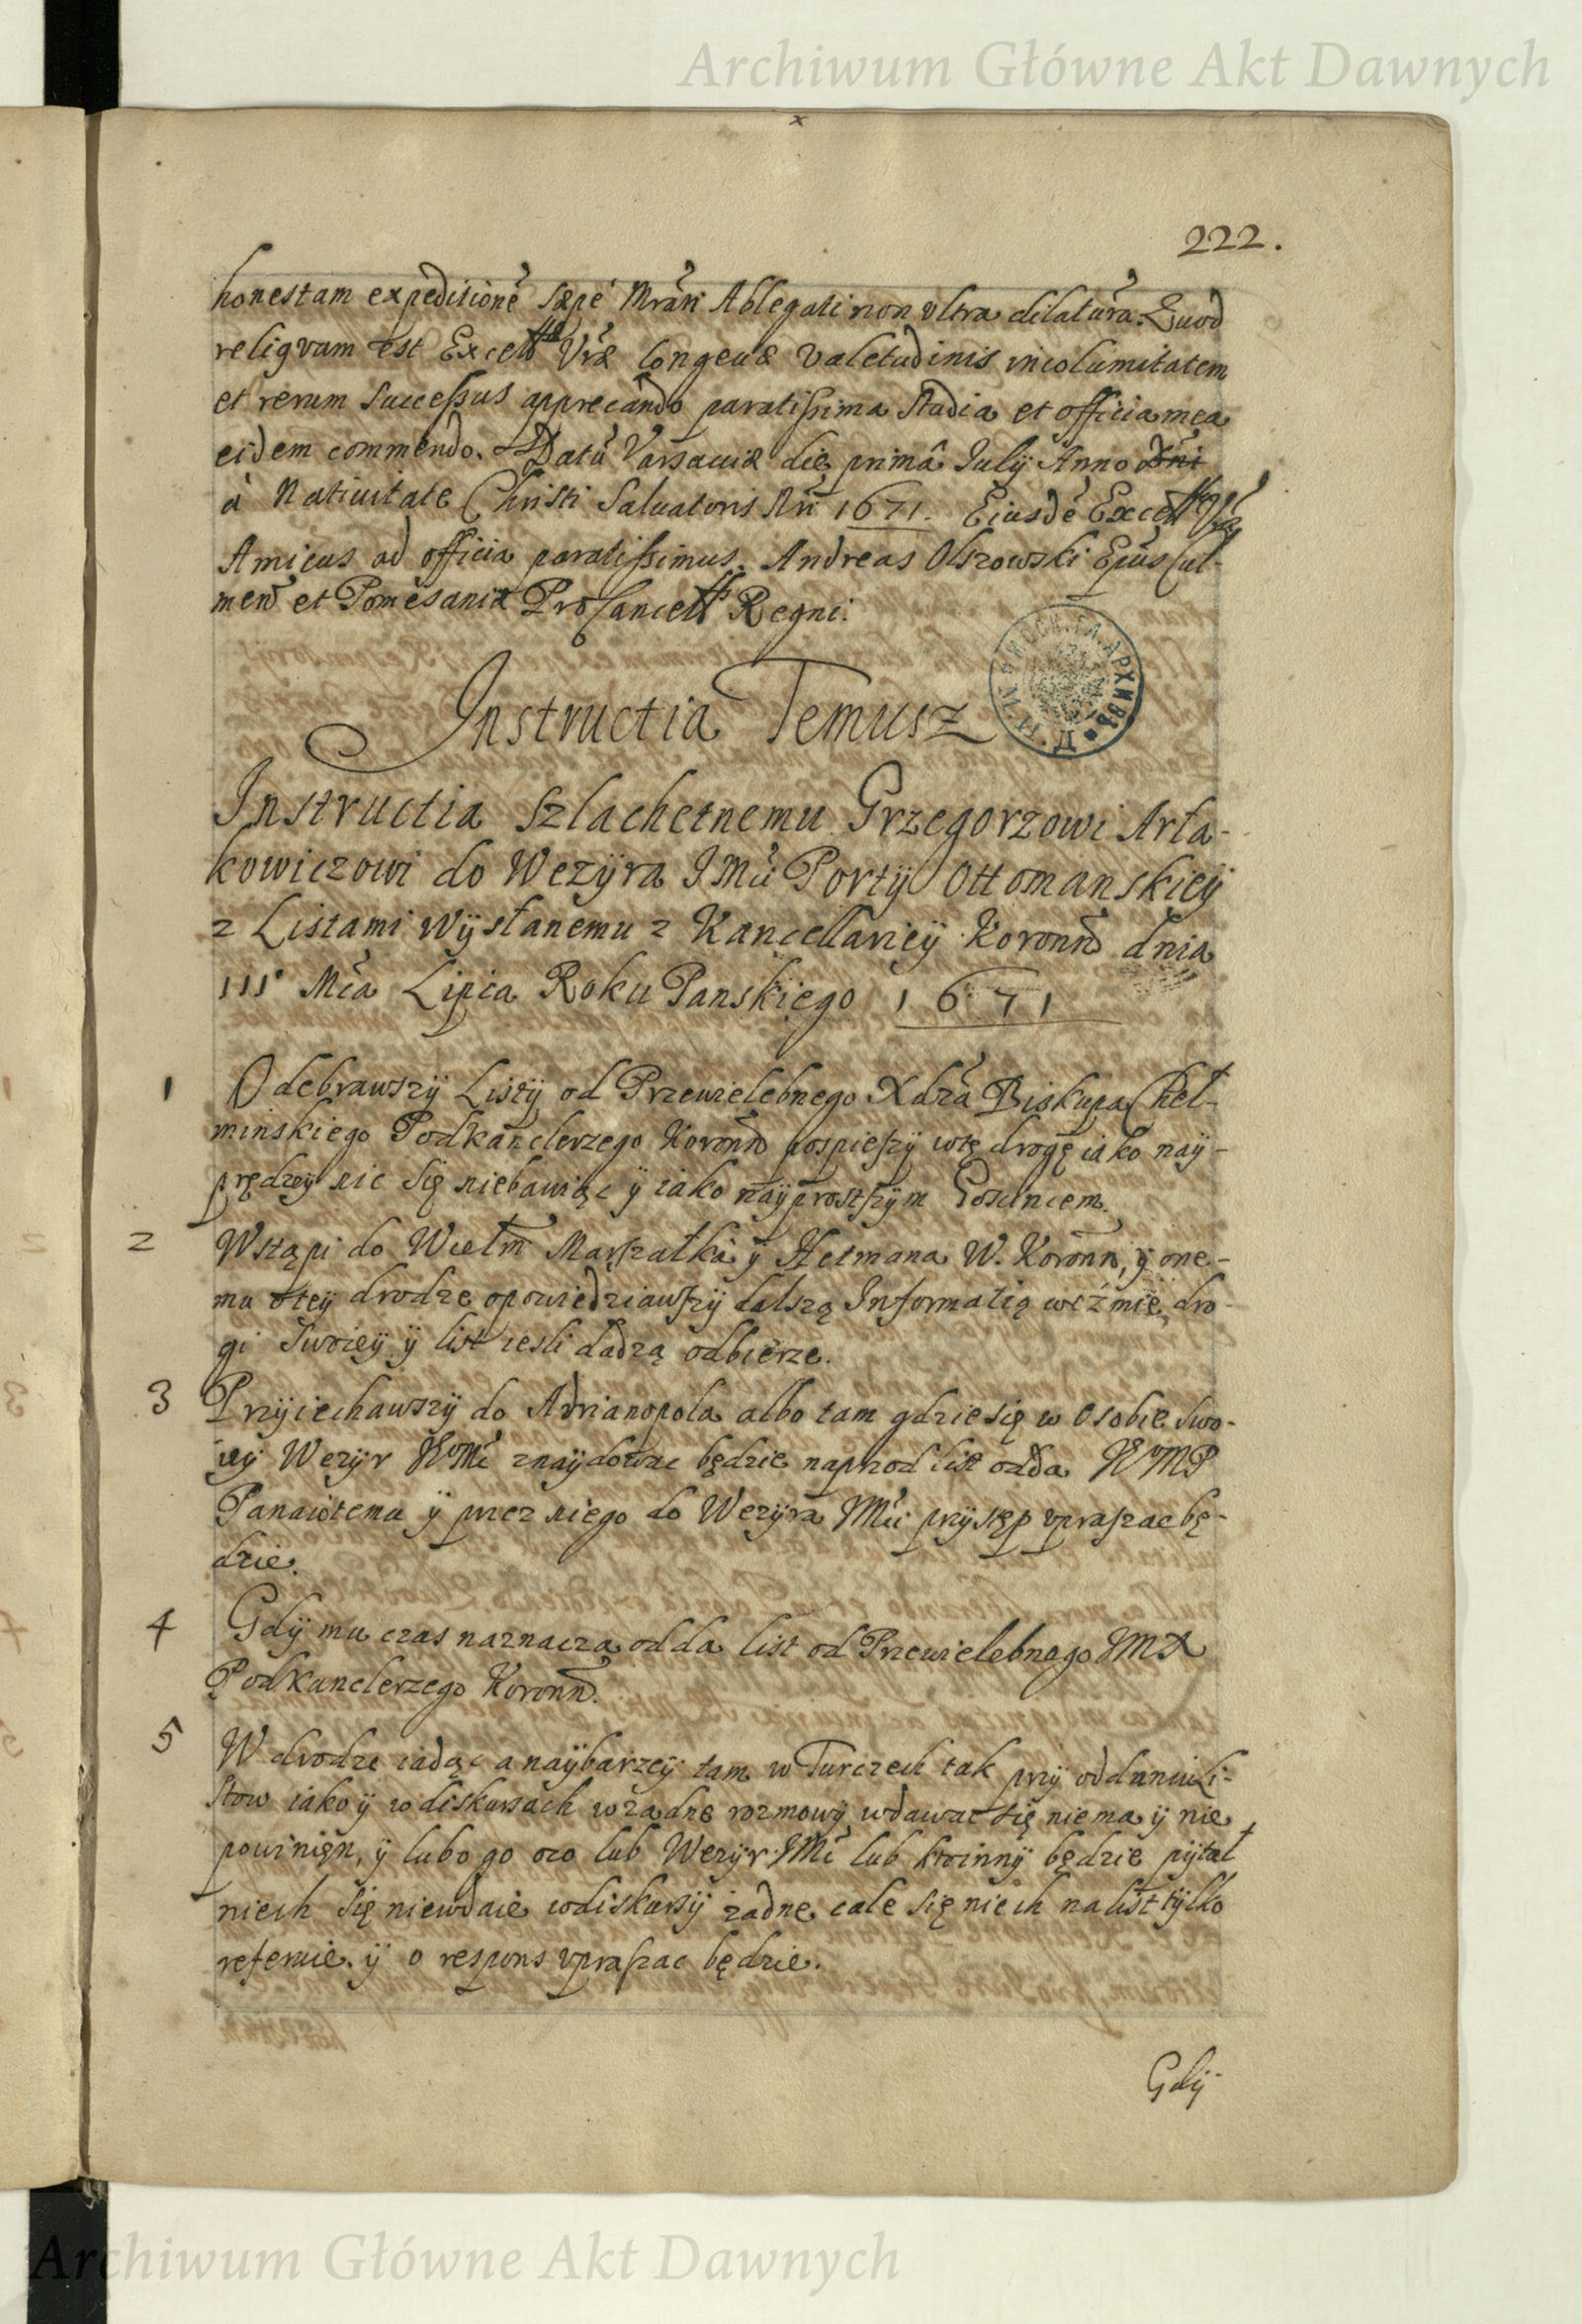 Archiwum Główne Akt Dawnych
222.
honestam expeditionē sæpé Mrāti Ablegati non vltra dilatūra. Quod
reliqvum est Excell^tiæ Vræ longeuæ valetudinis incolumitatem
et rerum Successus apprecando paratissima Studia et officia mea
eidem commendo. Datū Varsauiæ die primâ Julÿ Anno
à Natiuitate Christi Saluatoris Nri 1671. Eiusdē Excell^tiæ Vræ
Amicus ad officia paratissimus. Andreas Olszowski Epūs Cul-
men̄ et Pomesaniæ ProCancell^s Regni.
Instructia Temusz
Instructia Szlachetnemu Grzegorzowi Arta-
kowiczowi do Wezÿra JMci Portÿ Ottomanskieÿ
z Listami Wÿsłanemu z Kancellarieÿ Koronn̄ dnia
III° Mca Lipca Roku Panskiego 1671
1 Odebrawszÿ Listÿ od Przewielebnego Xdza Biskupa Cheł-
minskiego Podkanclerzego Koronn̄ pospieszÿ wtę drogę iako naÿ-
prędzeÿ nic się niebawiąc ÿ iako naÿprostszÿm Goscincem.
2 Wstąpi do Wielm̄ Marszałka ÿ Hetmana W. Koronn, ÿ one-
mu oteÿ drodze opowiedziawszÿ dalszą Informatią weźmie, dro-
gi Swoieÿ ÿ list iesli dadzą odbierze.
3 Przÿiechawszÿ do Adrianopola albo tam gdzie się w Osobie Swo-
ieÿ Wezÿr JeoMć znaÿdowac będzie naprzod list odda JeMP
Panaiotemu ÿ przez niego do Wezÿra JMci przÿstęp vpraszac bę-
dzie.
4 Gdÿ mu czas naznaczą odda list od Przewielebnego JMX
Podkanclerzego Koronn̄.
5 W drodze iadąc a naÿbarzeÿ tam w Turczech tak przÿ oddaniu Li-
stow iako ÿ wdiskursach wżadne rozmowÿ wdawac się niema ÿ nie
powinien, ÿ lubo go oco lub Wezÿr JMć lub kto innÿ będzie pÿtał
niech się niewdaie wdiskursÿ żadne, cale się niech na list tÿlko
referuie. ÿ o respons vpraszac będzie.
Gdÿ
Archiwum Główne Akt Dawnych